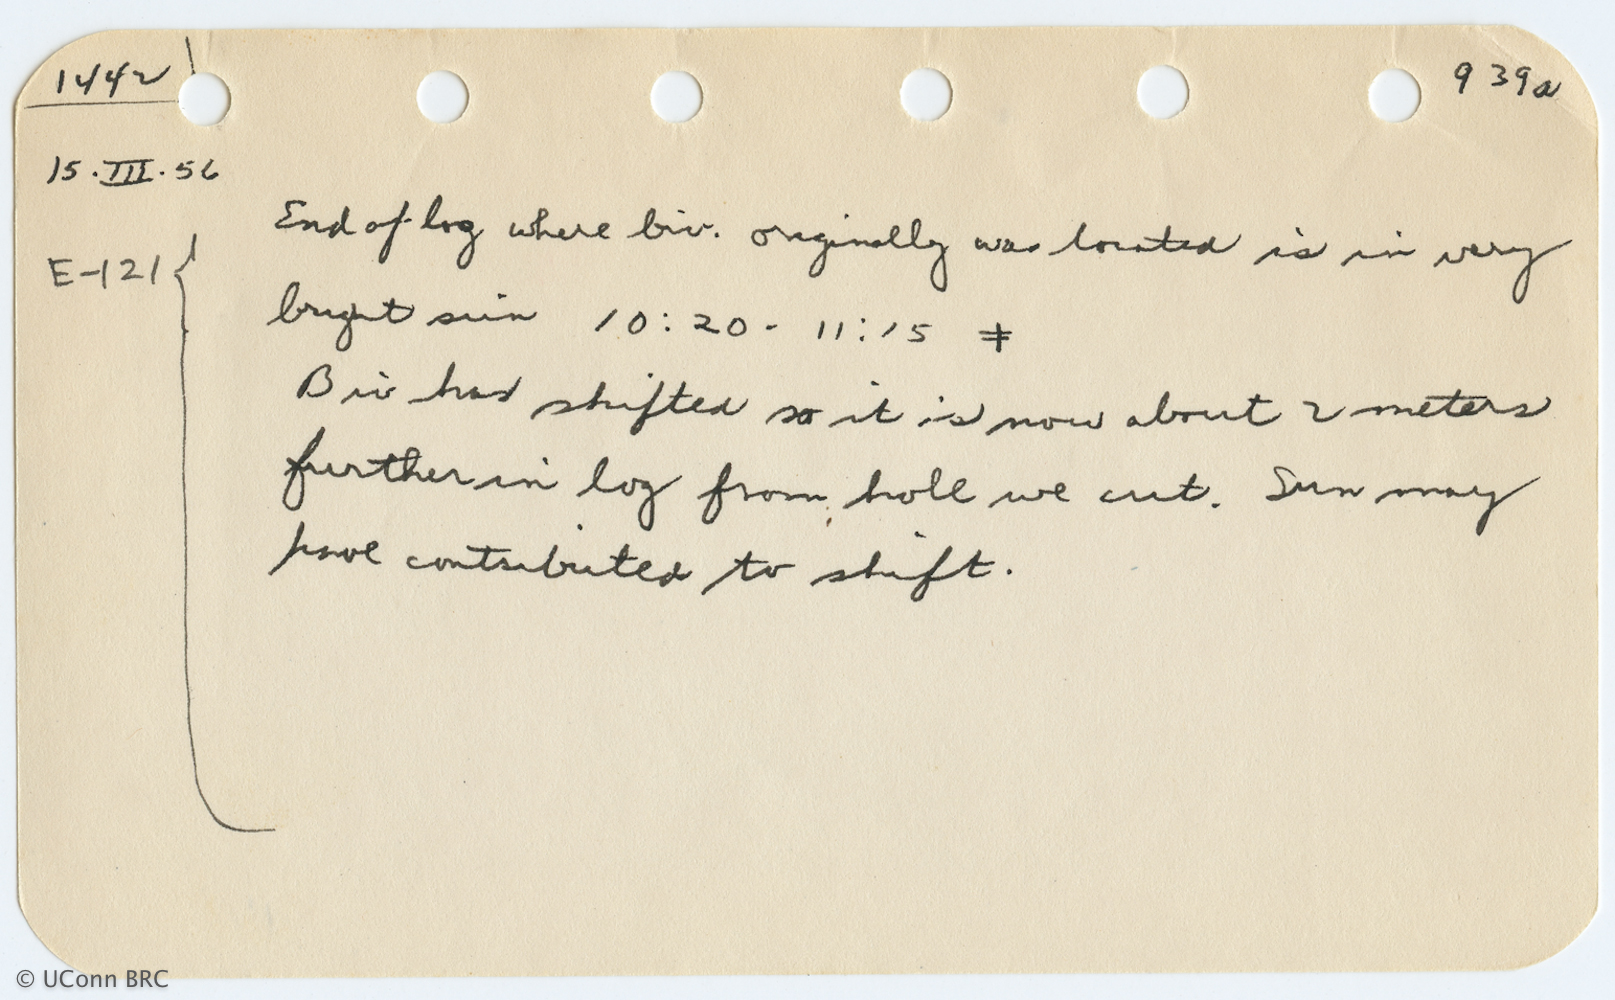 1442
939a
15.III.56
E-121
End of log where biv. originally was located is in very
bright sun 10:20 - 11:15 ‡
Biv has shifted so it is now about 2 meters
further in log from hole we cut. Sun may
have contributed to shift.
© UConn BRC